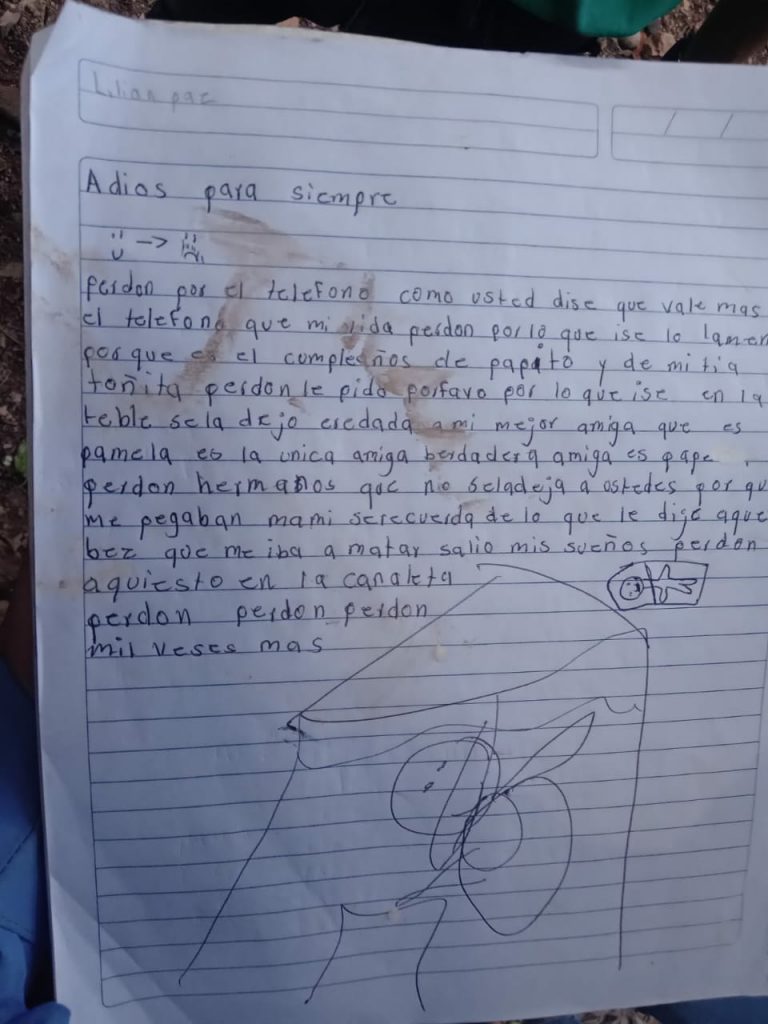 Lilian paz
Adios para siempre
perdon por el telefono como usted dise que vale mas
el telefono que mi vida perdon por lo que ise lo lamen
porque es el compleños de papito y de mi tia
toñita perdon le pido porfavo por lo que ise en la
teble se la dejo eredada a mi mejor amiga que es
pamela es la unica amiga berdadera amiga es pape.
perdon hermanos que no seladeja a ostedes por qu
me pegaban mami serecuerda de lo que le dije aque
bez que me iba a matar salio mis sueños perdon
aquiesto en la canaleta
perdon perdon perdon
mil veses mas